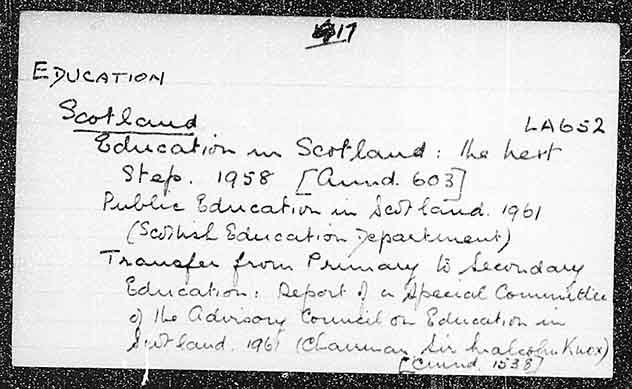 17
EDUCATION
Scotland
LA652
Education in Scotland: the next
Step. 1958 [Cmnd. 603]
Public Education in Scotland. 1961
(Scottish Education Department)
Transfer from Primary to Secondary
Education: Report of a Special Committee
of the Advisory Council on Education in
Scotland. 1961 (Chairman Sir Malcolm Knox)
[Cmnd. 1538]